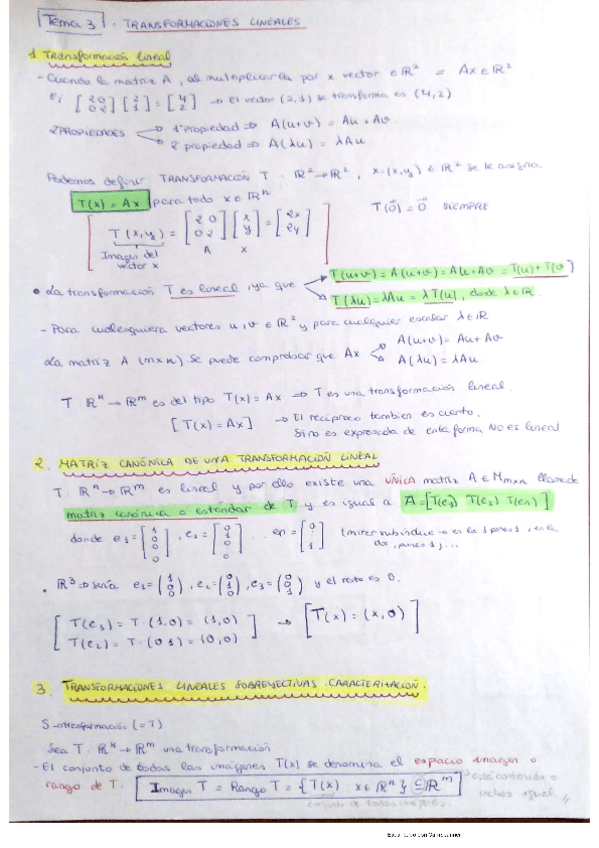 Tema 3. TRANSFORMACIONES LINEALES
1. Transformación lineal
- Cuando la matriz A, al multiplicarla por x vector ∈ R² = Ax ∈ R²
Ej [2 0; 0 2] [2; 1] = [4; 2] → El vector (2,1) se transforma es (4,2)
2 PROPIEDADES → 1ª propiedad ⇒ A(u+v) = Au + Av
→ 2ª propiedad ⇒ A(λu) = λAu
Podemos definir TRANSFORMACIÓN T: R² → R², x=(x,y) ∈ R² se le asigna
T(x) = Ax para todo x ∈ Rⁿ T(0) = 0 SIEMPRE
[T(x,y) = [2 0; 0 2] [x; y] = [2x; 2y]]
Imagen del vector x A x
• La transformación T es lineal, ya que → T(u+v) = A(u+v) = Au + Av = T(u) + T(v)
→ T(λu) = λAu = λT(u), donde λ ∈ R
- Para cualesquiera vectores u, v ∈ R² y para cualquier escalar λ ∈ R
La matriz A (m×n). Se puede comprobar que Ax → A(u+v) = Au + Av
→ A(λu) = λAu
T: Rⁿ → Rᵐ es del tipo T(x) = Ax ⇒ T es una transformación lineal.
[T(x) = Ax] → El recíproco tambien es cierto.
Si no es expresada de esta forma NO es lineal
2. MATRIZ CANÓNICA DE UNA TRANSFORMACIÓN LINEAL
T: Rⁿ → Rᵐ es lineal y por ello existe una ÚNICA matriz A ∈ Mm×n llamada
matriz canónica o estándar de T y es igual a A = [T(e₁) T(e₂) T(en)]
donde e₁ = [1; 0; 0; 0], e₂ = [0; 1; 0; 0] ... en = [0; ⋮; 1] (mirar subíndice → es la 1 pones 1, es la
2, pones 1, ...
• R³ ⇒ sería e₁ = (1; 0; 0), e₂ = (0; 1; 0), e₃ = (0; 0; 1) y el resto es 0.
[T(e₁) = T·(1,0) = (1,0)
T(e₂) = T·(0 1) = (0,0)] → [T(x) = (x,0)]
3. TRANSFORMACIONES LINEALES SOBREYECTIVAS. CARACTERIZACIÓN.
Sea T: Rⁿ → Rᵐ una transformación
- El conjunto de todas las imágenes T(x) se denomina el espacio imagen o
rango de T. Imagen T = Rango T = {T(x) x ∈ Rⁿ} ⊆ Rᵐ está contenido o
incluso igual
conjunto de todas imágenes.